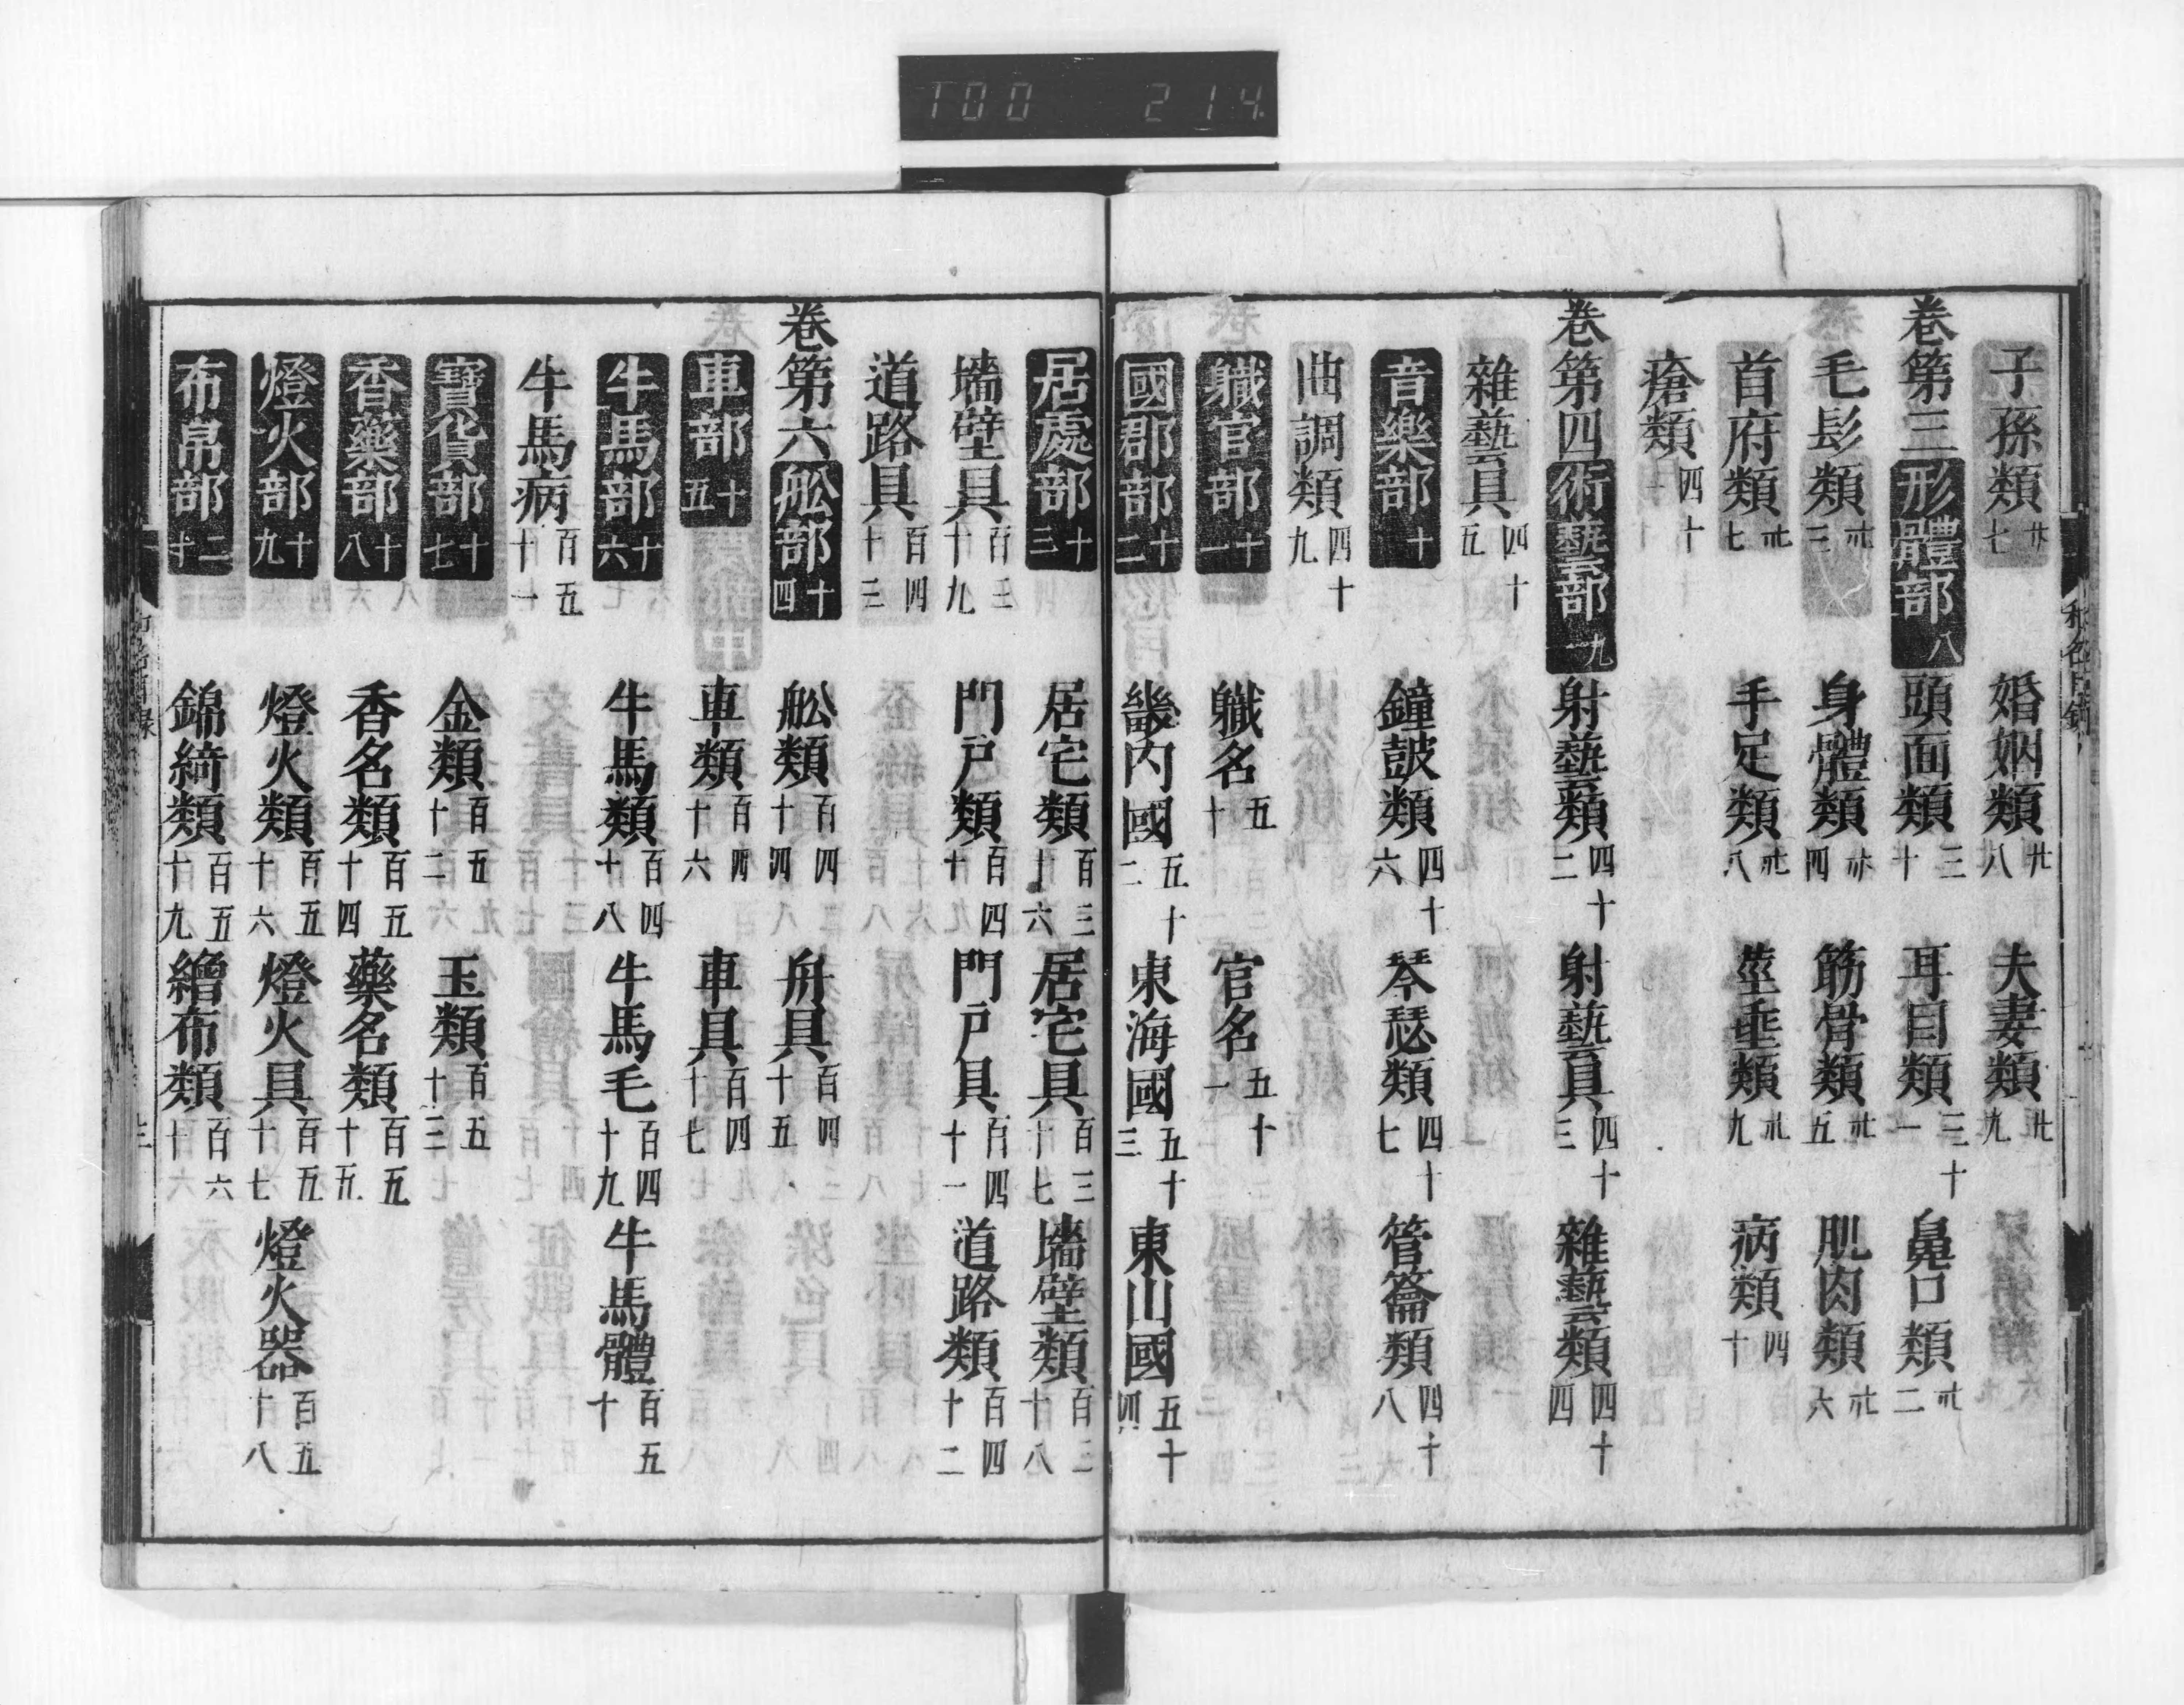 T00 214
子孫類廿七 婚姻類廿八 夫妻類廿九
卷第三 形體部八 頭面類三十 耳目類三十一 鼻口類卅二
毛髟類卅三 身體類卅四 筋骨類卅五 肌肉類卅六
首府類卅七 手足類卅八 莖垂類卅九 病類四十
瘡類四十一
卷第四 術藝部九 射藝類四十二 射藝具四十三 雜藝類四十四
雜藝具四十五
音樂部十 鐘鼓類四十六 琴瑟類四十七 管籥類四十八
曲調類四十九
職官部十一 職名五十 官名五十一
國郡部十二 畿内國五十二 東海國五十三 東山國五十四
居處部十三 居宅類百三十六 居宅具百三十七 墻壁類百三十八
墻壁具百三十九 門戸類百四十 門戸具百四十一 道路類百四十二
道路具百四十三
卷第六 舩部十四 舩類百四十四 舟具百四十五
車部十五 車類百四十六 車具百四十七
牛馬部十六 牛馬類百四十八 牛馬毛百四十九 牛馬體百五十
牛馬病百五十一
寶貨部十七 金類百五十二 玉類百五十三
香藥部十八 香名類百五十四 藥名類百五十五
燈火部十九 燈火類百五十六 燈火具百五十七 燈火器百五十八
布帛部二十 錦綺類百五十九 繒布類百六十